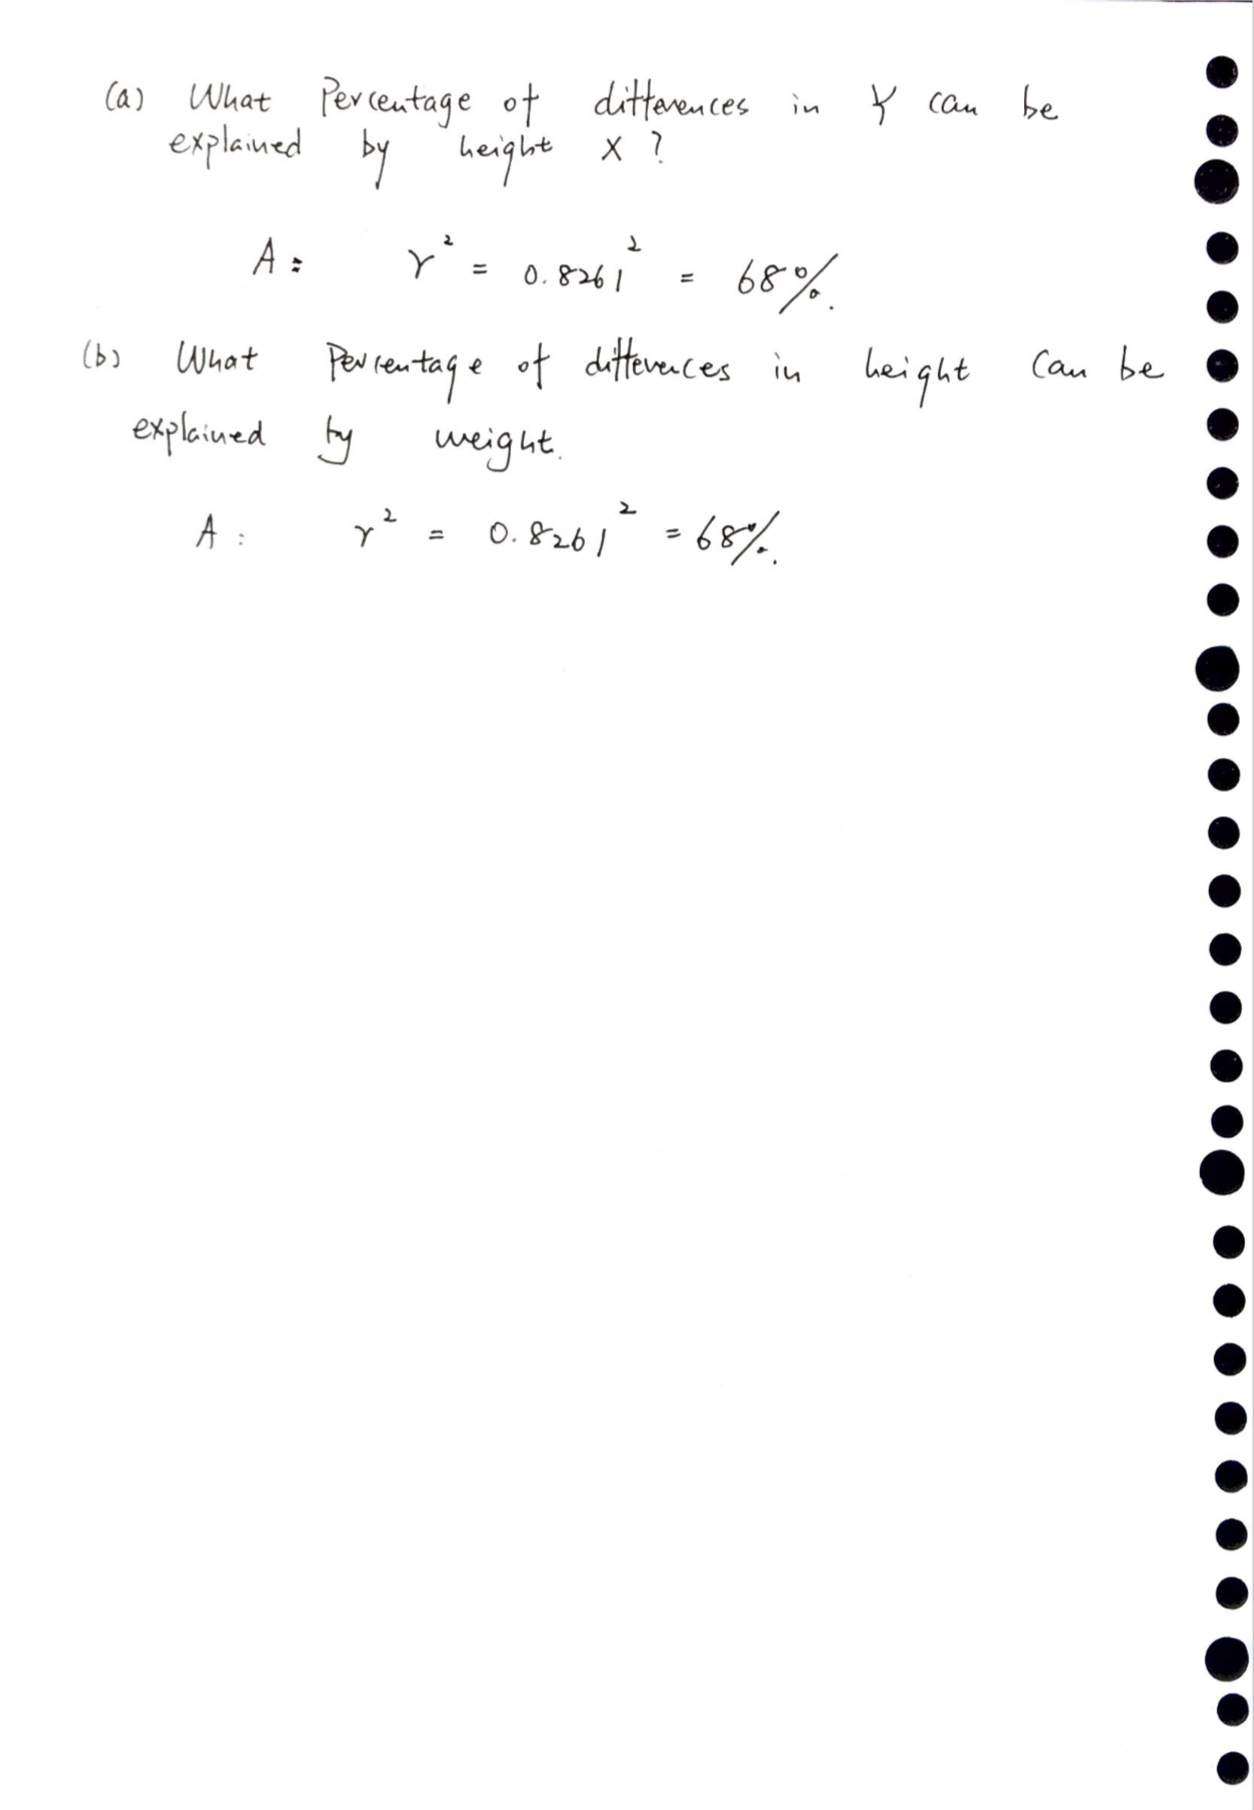 (a) What Percentage of differences in Y can be
explained by height x ?
A: r² = 0.8261² = 68%.
(b) What Percentage of differences in height Can be
explained by weight.
A: r² = 0.8261² = 68%.